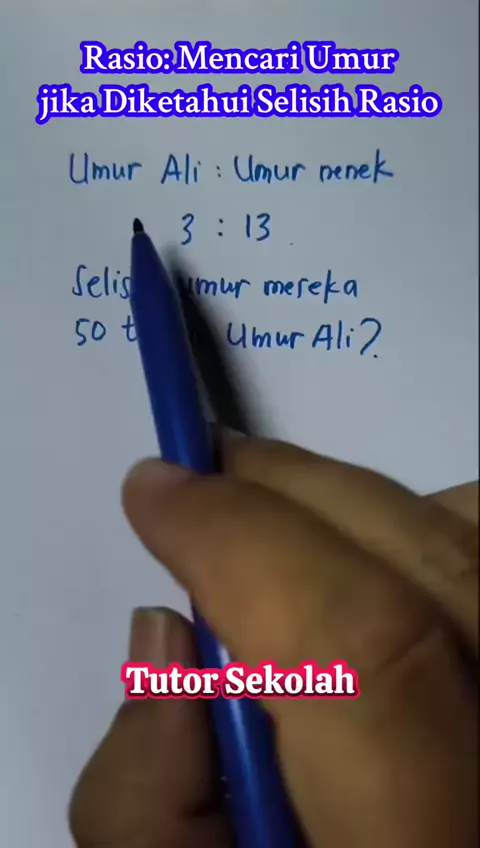 Rasio: Mencari Umur
jika Diketahui Selisih Rasio
Umur Ali : Umur nenek
3 : 13
umur mereka
50 Umur Ali?
Tutor Sekolah